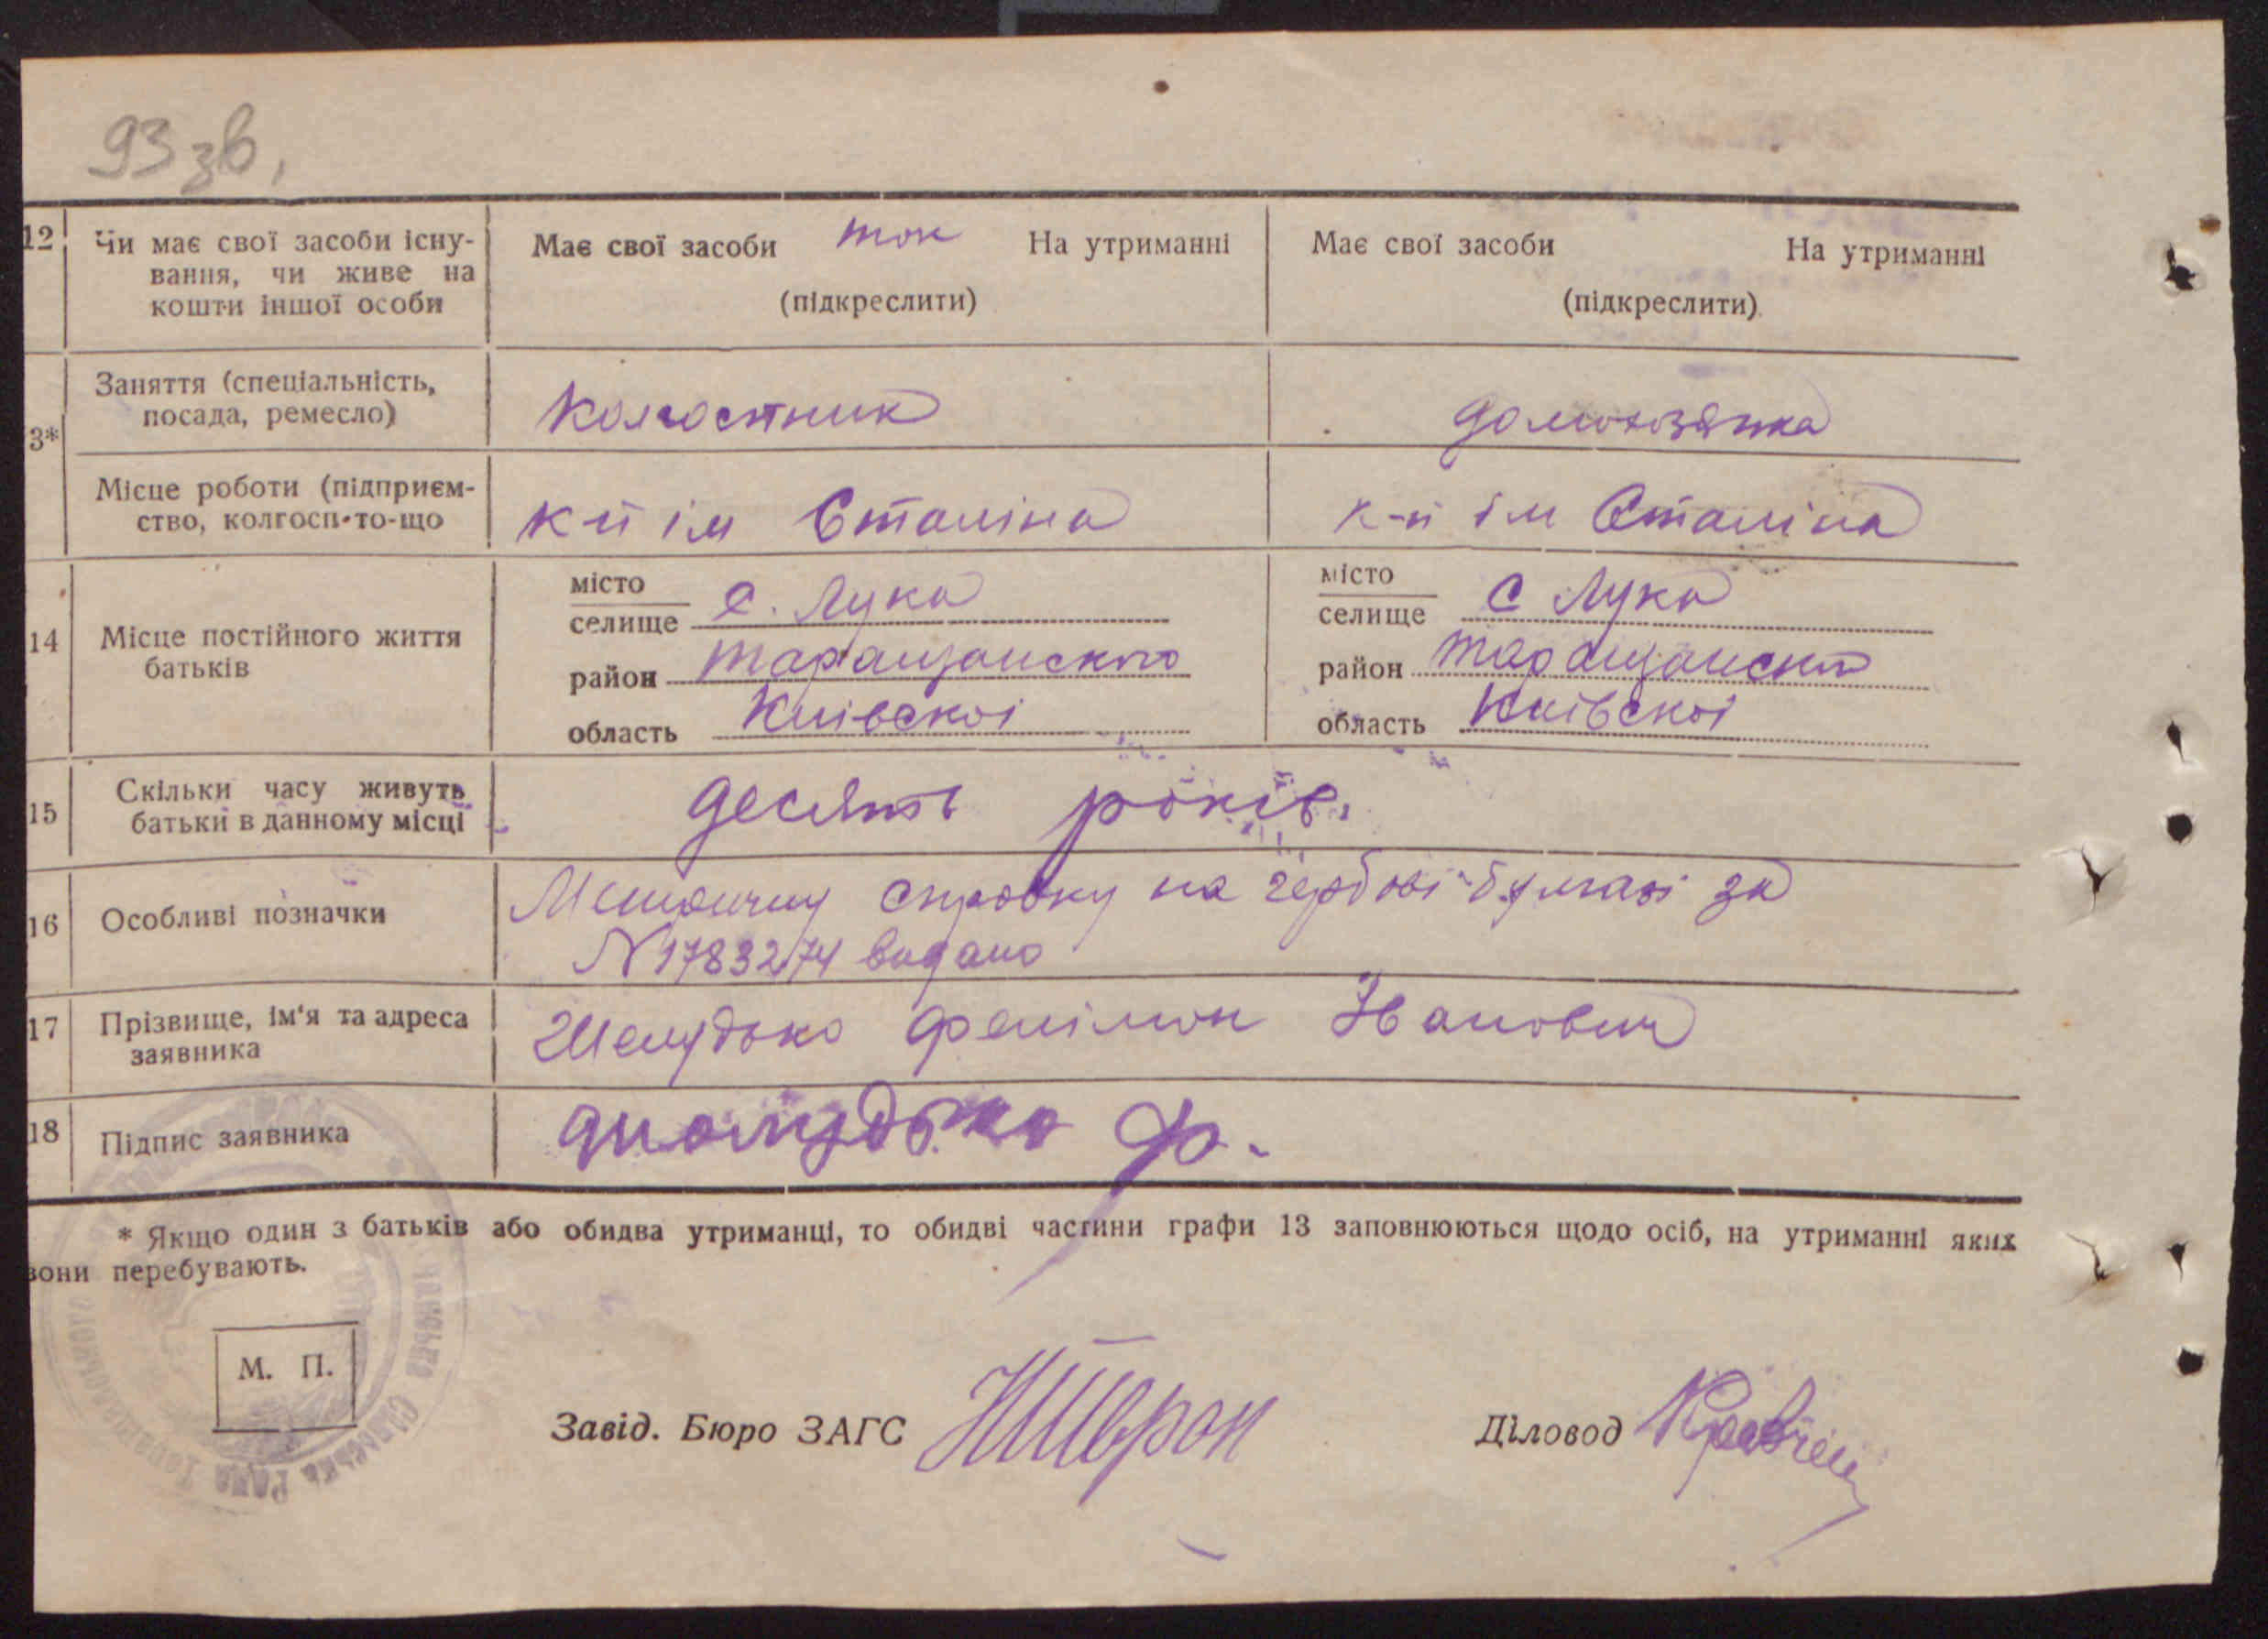 93 зв.
12 Чи має свої засоби існу-
вання, чи живе на
кошти іншої особи
Має свої засоби так На утриманні
(підкреслити)
Має свої засоби На утриманні
(підкреслити)
3* Заняття (спеціальність,
посада, ремесло)
Колгоспник
домохозяйка
Місце роботи (підприєм-
ство, колгосп-то-що
к-п ім Сталіна
к-п ім Сталіна
14 Місце постійного життя
батьків
місто
селище с. Лука
район Таращанского
область Київскої
місто
селище с Лука
район Таращанско
область Київскої
15 Скільки часу живуть
батьки в данному місці
десять років.
16 Особливі позначки
справку на гербові бумазі за
N 1783274 видано
17 Прізвище, ім'я та адреса
заявника
Шелудько Філімон Іванович
18 Підпис заявника
Ф.
* Якщо один з батьків або обидва утриманці, то обидві частини графи 13 заповнюються щодо осіб, на утриманні яких
вони перебувають.
М. П.
Завід. Бюро ЗАГС
Діловод
Сільська Рада